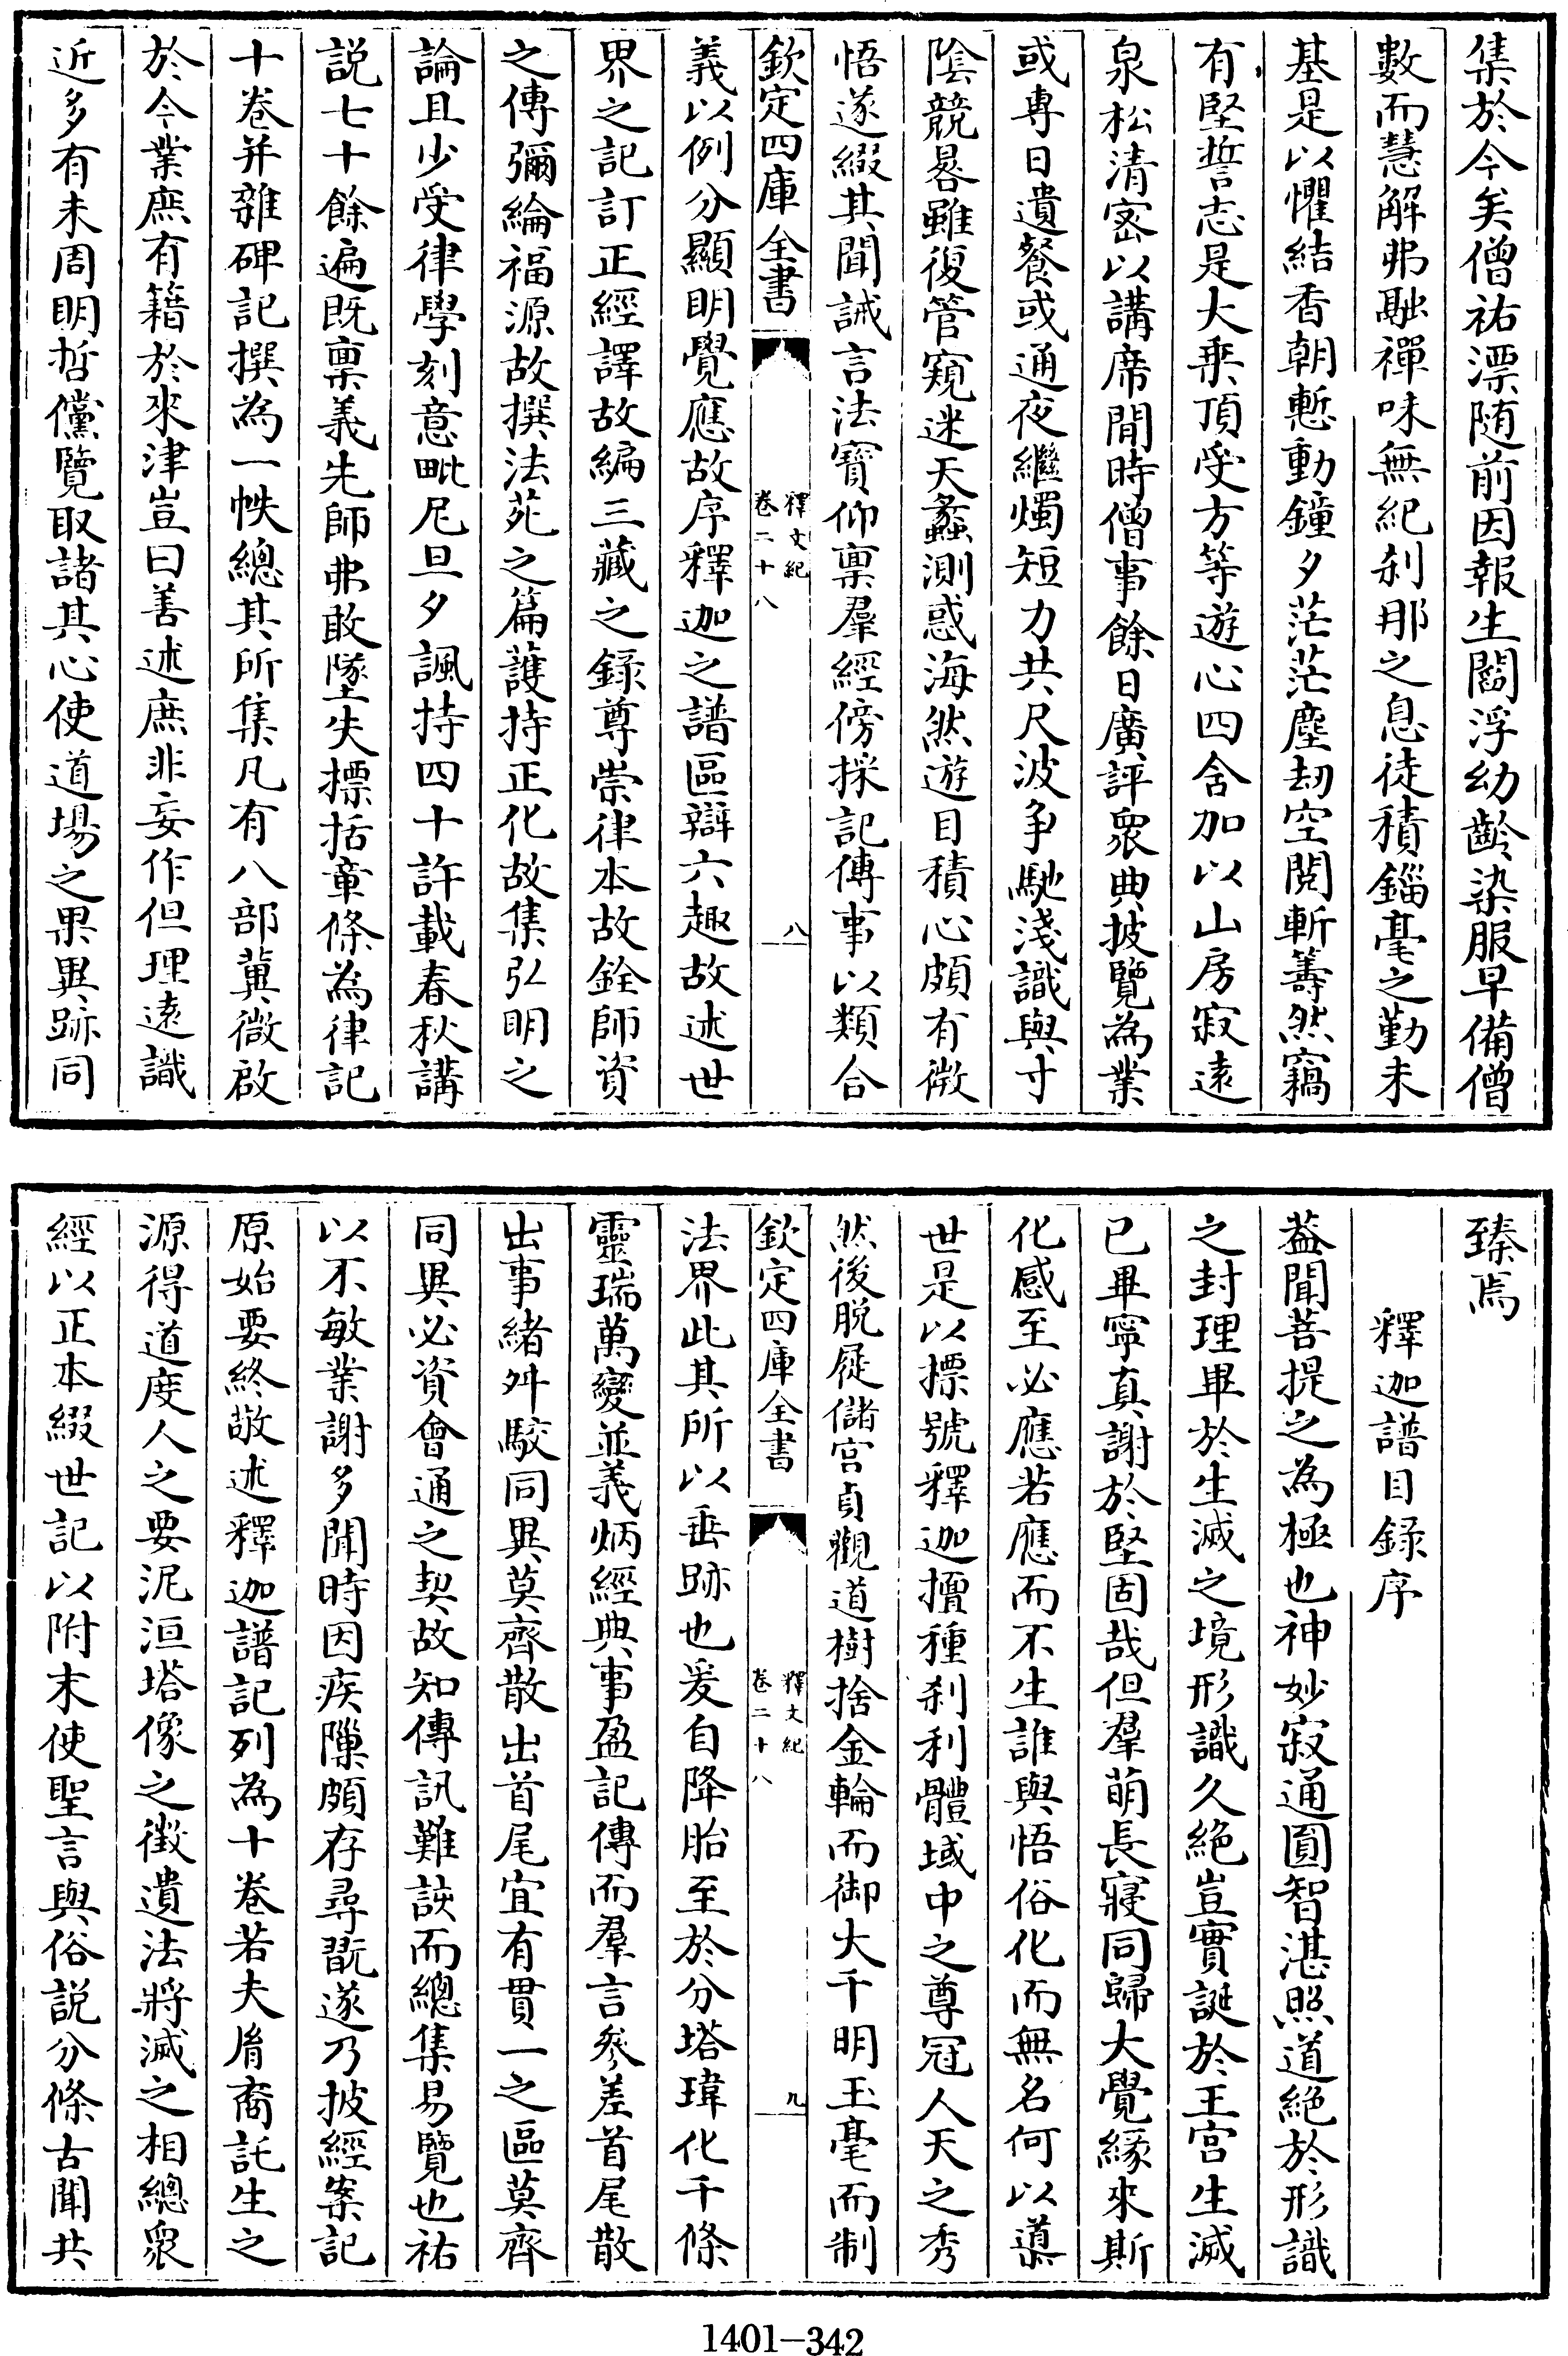 集於今矣僧祐漂随前因報生閻浮幼齡染服早備僧
數而慧解弗融禪味無紀刹那之息徒積錙毫之勤未
基是以懼結香朝慙動鐘夕茫茫塵劫空閱斬籌然竊
有堅誓志是大乗頂受方等遊心四舍加以山房寂遠
泉松清密以講席間時僧事餘日廣評衆典披覽為業
或專日遺餐或通夜繼燭短力共尺波争馳淺識與寸
陰競晷雖復管窺迷天蠡測惑海然遊目積心頗有微
悟遂綴其聞誡言法寳仰禀羣經傍採記傳事以類合
欽定四庫全書
釋文紀
卷二十八
八
義以例分顯明覺應故序釋迦之譜區辯六趣故述世
界之記訂正經譯故編三藏之録尊崇律本故銓師資
之傳彌綸福源故撰法苑之篇護持正化故集弘明之
論且少受律學刻意毗尼旦夕諷持四十許載春秋講
説七十餘遍既禀義先師弗敢墜失摽括章條為律記
十卷并雜碑記撰為一帙總其所集凡有八部冀微啟
於今業庶有籍於來津豈曰善述庶非妄作但理遠識
近多有未周明哲儻覽取諸其心使道場之果異跡同
臻焉
釋迦譜目録序
葢聞菩提之為極也神妙寂通圓智湛照道絶於形識
之封理畢於生滅之境形識久絶豈實誕於王宫生滅
已畢寧真謝於堅固哉但羣萌長寢同歸大覺緣來斯
化感至必應若應而不生誰與悟俗化而無名何以導
世是以摽號釋迦擅種刹利體域中之尊冠人天之秀
然後脱屣儲宫貞觀道樹捨金輪而御大千明玉毫而制
欽定四庫全書
釋文紀
卷二十八
九
法界此其所以垂跡也爰自降胎至於分塔瑋化千條
靈瑞萬變並義炳經典事盈記傳而羣言參差首尾散
出事緒舛駮同異莫齊散出首尾宜有貫一之區莫齊
同異必資會通之契故知傳訊難該而總集易覽也祐
以不敏業謝多聞時因疾隟頗存尋翫遂乃披經案記
原始要終敬述釋迦譜記列為十卷若夫胤裔託生之
源得道度人之要泥洹塔像之徵遺法將滅之相總衆
經以正本綴世記以附末使聖言與俗説分條古聞共
1401-342